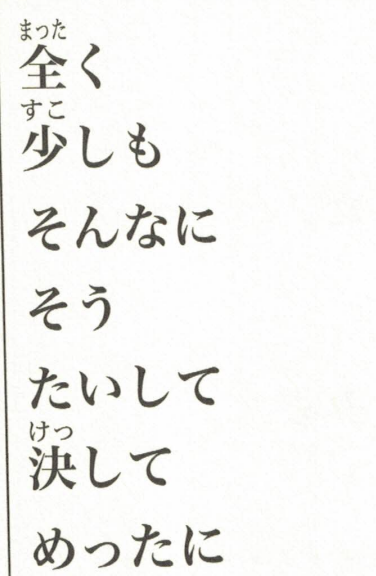 まった
全く
すこ
少しも
そんなに
そう
たいして
けっ
決して
めったに